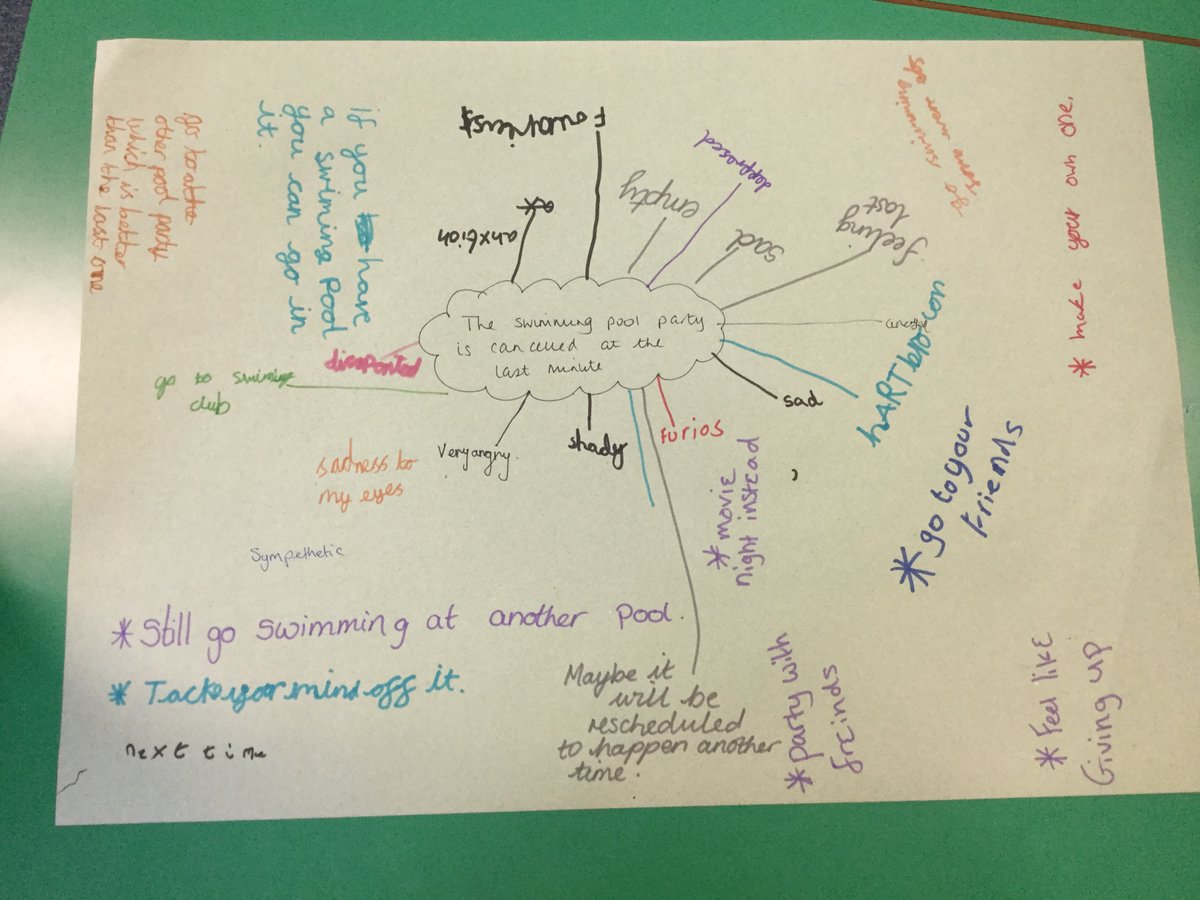 The swimming pool party
is cancelled at the
last minute
go to a the
other pool party
which is better
than the last one
If you have
a swiming Pool
you can go in
it.
anxtion
empty
deppresed
sad
feeling
lost
go swimming
some where els
* make your own one.
hARTbrocon
sad
furios
shady
Very angry.
dissponted
go to swiming
club
sadness to
my eyes
Sympethetic
* Still go swimming at another pool.
* Tack your mind off it.
next time
Maybe it
will be
rescheduled
to happen another
time.
* movie
night instead
* go to your
friends
* party with
freinds
* Feel like
Giving up